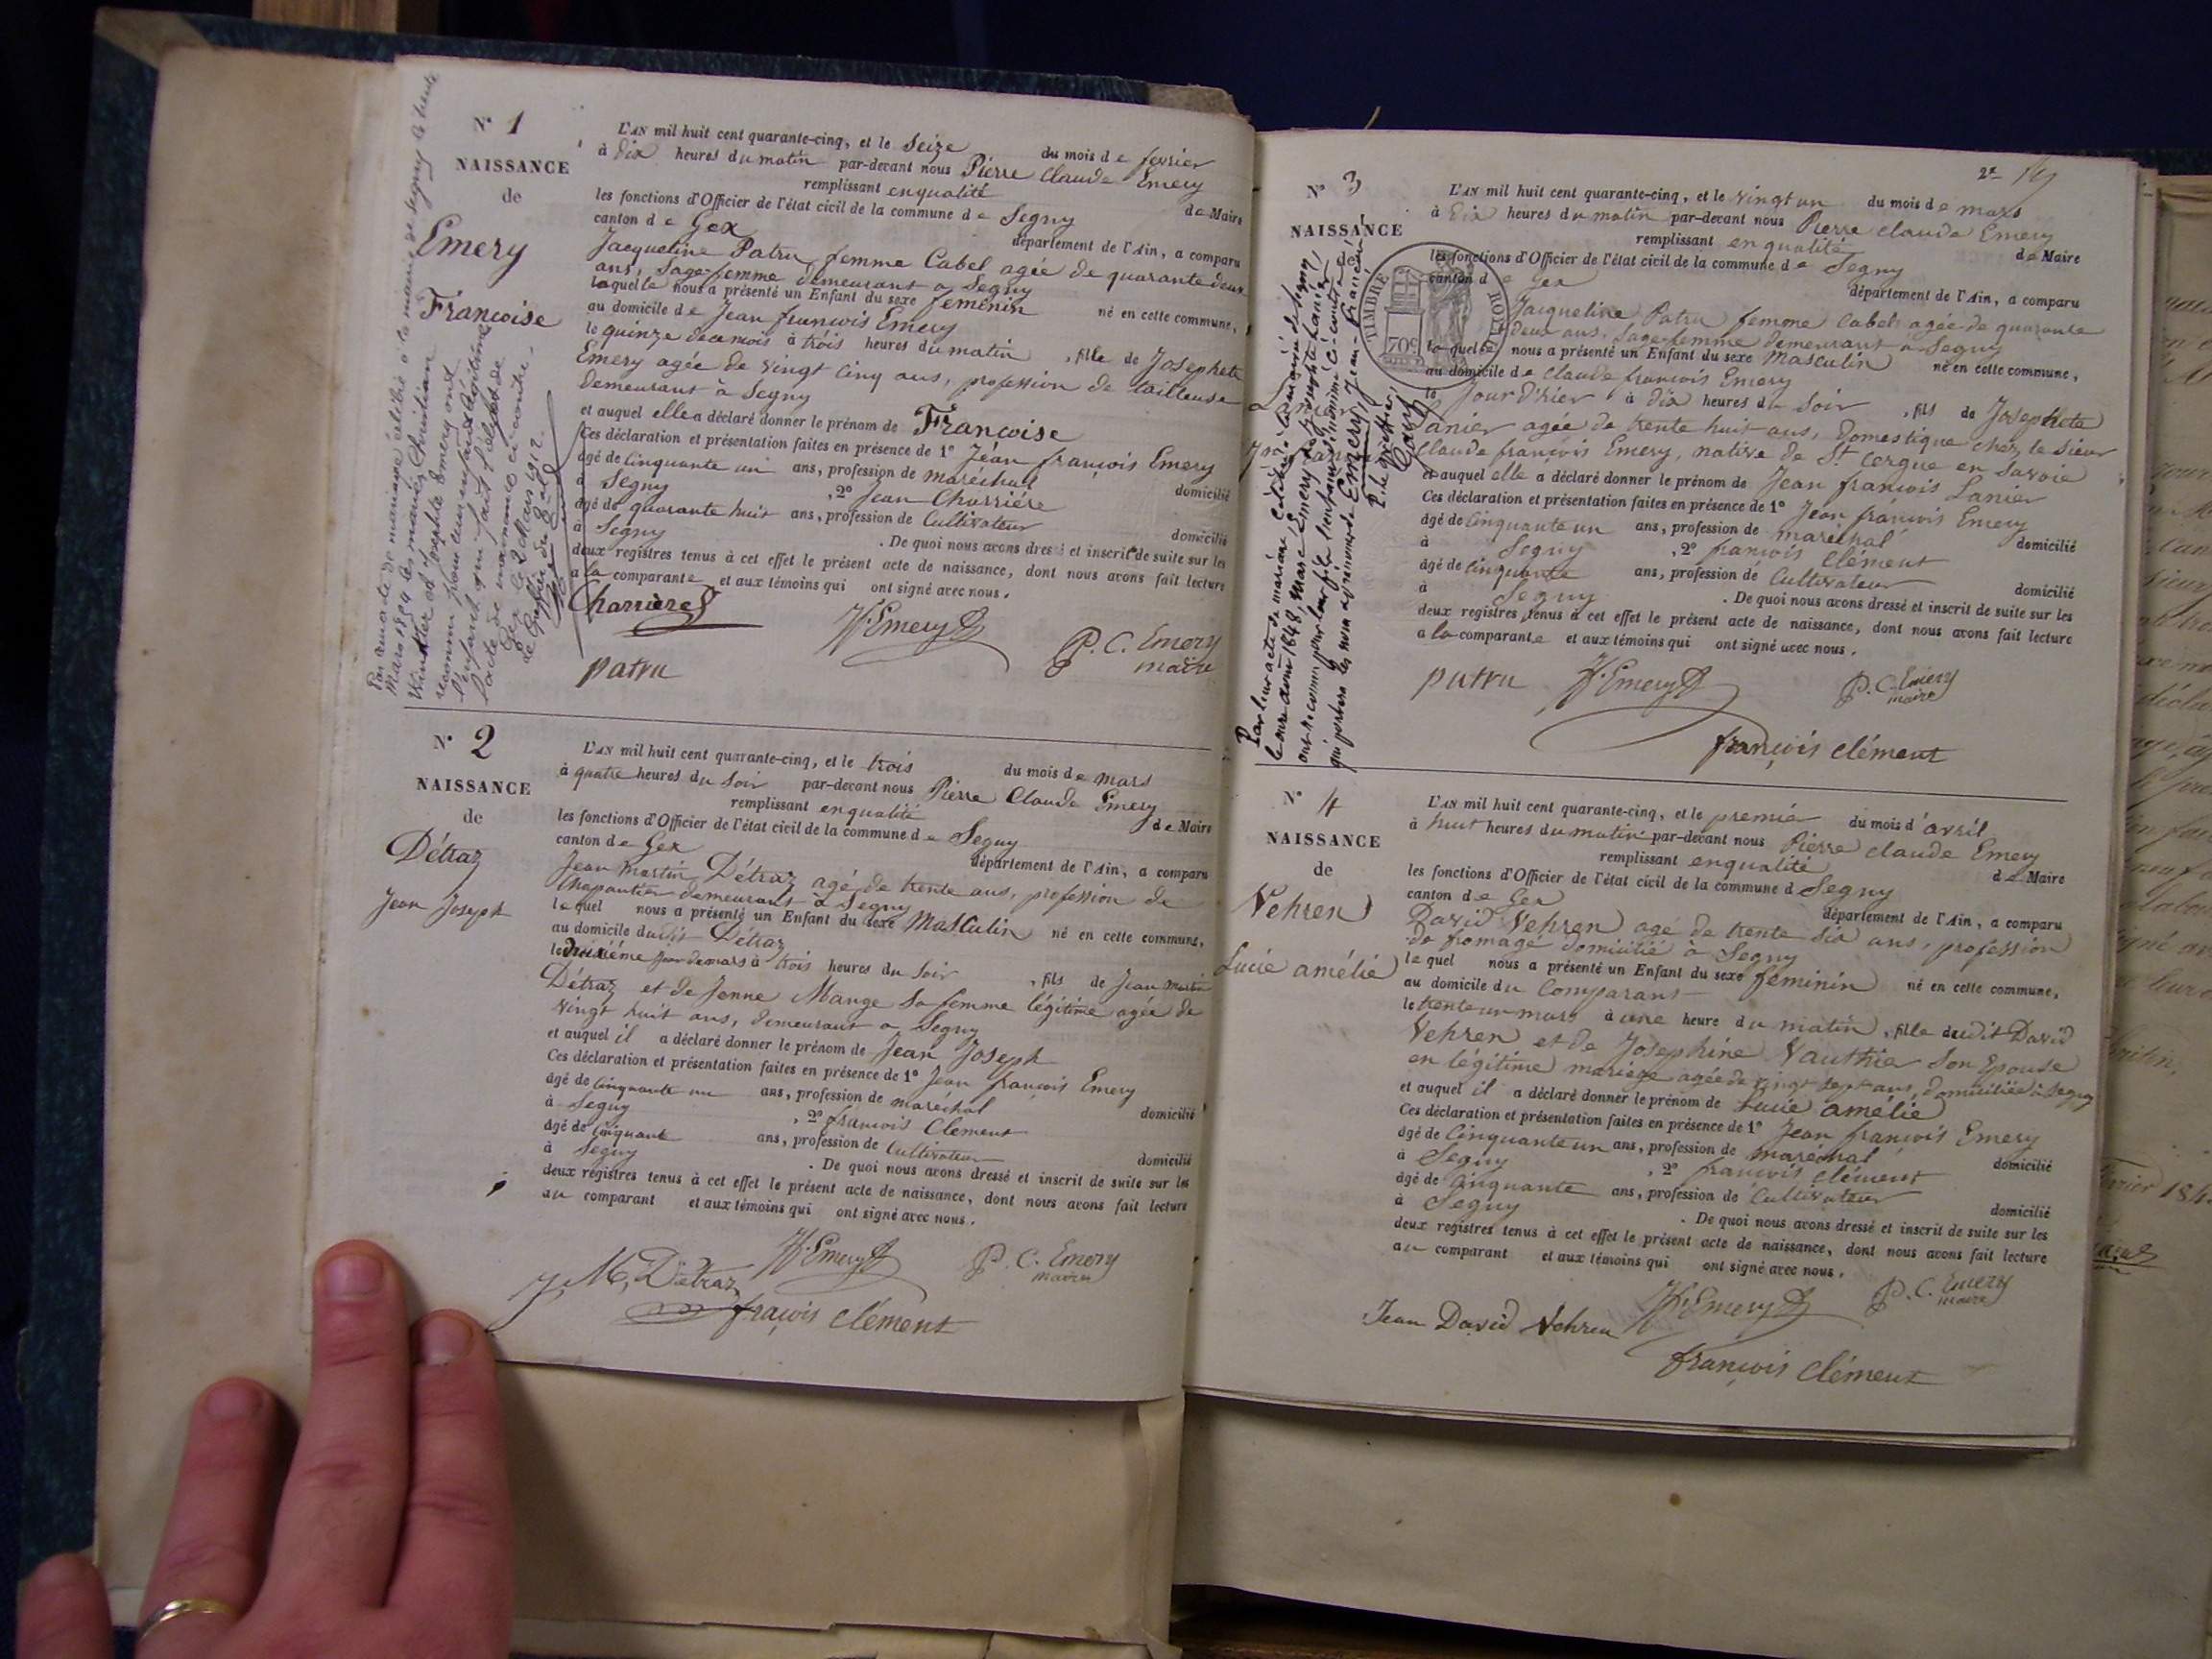 N° 1
NAISSANCE
de
Emery
Françoise
L'AN mil huit cent quarante-cinq, et le Seize du mois de fevrier
à dix heures du matin par-devant nous Pierre Claude Emery
remplissant en qualité de Maire
les fonctions d'Officier de l'état civil de la commune de Segny
canton de Gex département de l'Ain, a comparu
Jacqueline Patru femme Cabel agée de quarante deux
ans, Sage-femme demeurant a Segny
laquelle nous a présenté un Enfant du sexe feminin né en cette commune,
au domicile de Jean françois Emery
le quinze de ce mois à trois heures du matin, fille de Josephete
Emery agée de vingt cinq ans, profession de tailleuse
Demeurant à Segny
et auquel elle a déclaré donner le prénom de Françoise
Ces déclaration et présentation faites en présence de 1° Jean françois Emery
âgé de Cinquante un ans, profession de maréchal domicilié
à Segny, 2° Jean Charriére
âgé de quarante huit ans, profession de Cultivateur domicilié
à Segny. De quoi nous avons dressé et inscrit de suite sur les
deux registres tenus à cet effet le présent acte de naissance, dont nous avons fait lecture
a la comparante et aux témoins qui ont signé avec nous.
Charrière
Emery
P. C. Emery
maire
patru
Par acte de mariage célébré à la mairie de Segny le trente
Mars 1854 les mariés Christian
et Josephte Emery ont
reconnu pour leur enfant légitime
l'enfant qui fait l'objet de
l'acte de naissance ci-contre.
Gex le 2 Mars 1912.
N° 2
NAISSANCE
de
Détraz
Jean Joseph
L'AN mil huit cent quarante-cinq, et le trois du mois de mars
à quatre heures du Soir par-devant nous Pierre Claude Emery
remplissant en qualité de Maire
les fonctions d'Officier de l'état civil de la commune de Segny
canton de Gex département de l'Ain, a comparu
Jean Martin Détraz agé de trente ans, profession de
Chapantier demeurant à Segny
lequel nous a présenté un Enfant du sexe Masculin né en cette commune,
au domicile dudit Détraz
le jour de mars à trois heures du Soir, fils de Jean Martin
Détraz et de Jenne Mange Sa femme légitime agée de
vingt huit ans, demeurant a Segny
et auquel il a déclaré donner le prénom de Jean Joseph
Ces déclaration et présentation faites en présence de 1° Jean françois Emery
âgé de Cinquante un ans, profession de maréchal domicilié
à Segny, 2° françois Clement
âgé de Cinquante ans, profession de Cultivateur domicilié
à Segny. De quoi nous avons dressé et inscrit de suite sur les
deux registres tenus à cet effet le présent acte de naissance, dont nous avons fait lecture
au comparant et aux témoins qui ont signé avec nous.
J. M. Détraz
Emery
P. C. Emery
maire
fraçois clément
N° 3
NAISSANCE
de
TIMBRE ROYAL
70c
L'AN mil huit cent quarante-cinq, et le vingt un du mois de mars
à Dix heures du matin par-devant nous Pierre claude Emery
remplissant en qualité de Maire
les fonctions d'Officier de l'état civil de la commune de Segny
canton de Gex département de l'Ain, a comparu
Jacqueline Patru femme Cabel agée de quarante
deux ans, Sage-femme demeurant a Segny
laquelle nous a présenté un Enfant du sexe Masculin né en cette commune,
au domicile de claude françois Emery
le Jour d'hier à dix heures du Soir, fils de Josephete
Lanier agée de trente huit ans, Domestique chez le Sieur
Claude françois Emery, native de St. Cergue en Savoie
et auquel elle a déclaré donner le prénom de Jean françois Lanier
Ces déclaration et présentation faites en présence de 1° Jean françois Emery
âgé de Cinquante un ans, profession de maréchal domicilié
à Segny, 2° françois Clément
âgé de Cinquante ans, profession de Cultivateur domicilié
à Segny. De quoi nous avons dressé et inscrit de suite sur les
deux registres tenus à cet effet le présent acte de naissance, dont nous avons fait lecture
a la comparante et aux témoins qui ont signé avec nous.
patru
Emery
P. C. Emery
maire
françois clément
Par leur acte de mariage célébré à la mairie de Segny
le onze avril 1848, Emery et Josephte Lanier
ont reconnu pour leur fils l'enfant dénommé ci-contre
qui portera les nom et prénoms de Emery Jean-François
N° 4
NAISSANCE
de
Vehren
Lucie amélie
L'AN mil huit cent quarante-cinq, et le premié du mois d'avril
à huit heures du matin par-devant nous Pierre claude Emery
remplissant en qualité de Maire
les fonctions d'Officier de l'état civil de la commune d Segny
canton de Gex département de l'Ain, a comparu
David Vehren agé de trente Six ans, profession
de fromage domicilié à Segny
lequel nous a présenté un Enfant du sexe féminin né en cette commune,
au domicile du Comparant
le trente un mars à une heure du matin, fille dudit David
Vehren et de Josephine Vauthier Son Epouse
en légitime mariage agée de vingt sept ans, domiciliée à Segny
et auquel il a déclaré donner le prénom de Lucie amélie
Ces déclaration et présentation faites en présence de 1° Jean françois Emery
âgé de Cinquante un ans, profession de maréchal domicilié
à Segny, 2° françois clément
âgé de Cinquante ans, profession de Cultivateur domicilié
à Segny. De quoi nous avons dressé et inscrit de suite sur les
deux registres tenus à cet effet le présent acte de naissance, dont nous avons fait lecture
au comparant et aux témoins qui ont signé avec nous.
Jean David Vehren
Emery
P. C. Emery
maire
françois clément